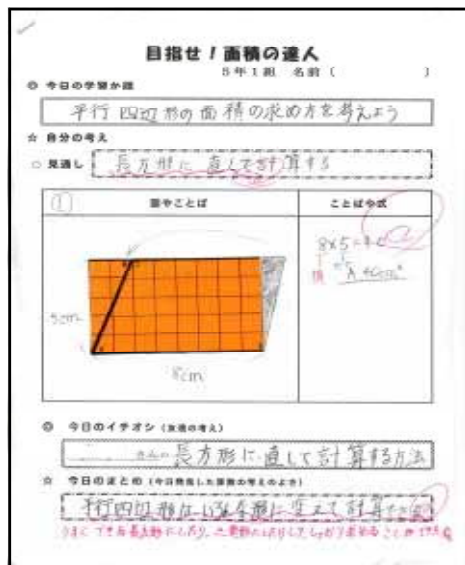 目指せ！面積の達人
5年1組 名前（ ）
◎ 今日の学習か題
平行四辺形の面積の求め方を考えよう
☆ 自分の考え
○ 見通し 長方形に直して計算する
① 図やことば ことばや式
8×5=40
5cm
8cm
◎ 今日のイチオシ（友達の考え）
さんの長方形に直して計算する方法
☆ 今日のまとめ（今日発見した算数の考えのよさ）
平行四辺形はいろな形に変えて計算